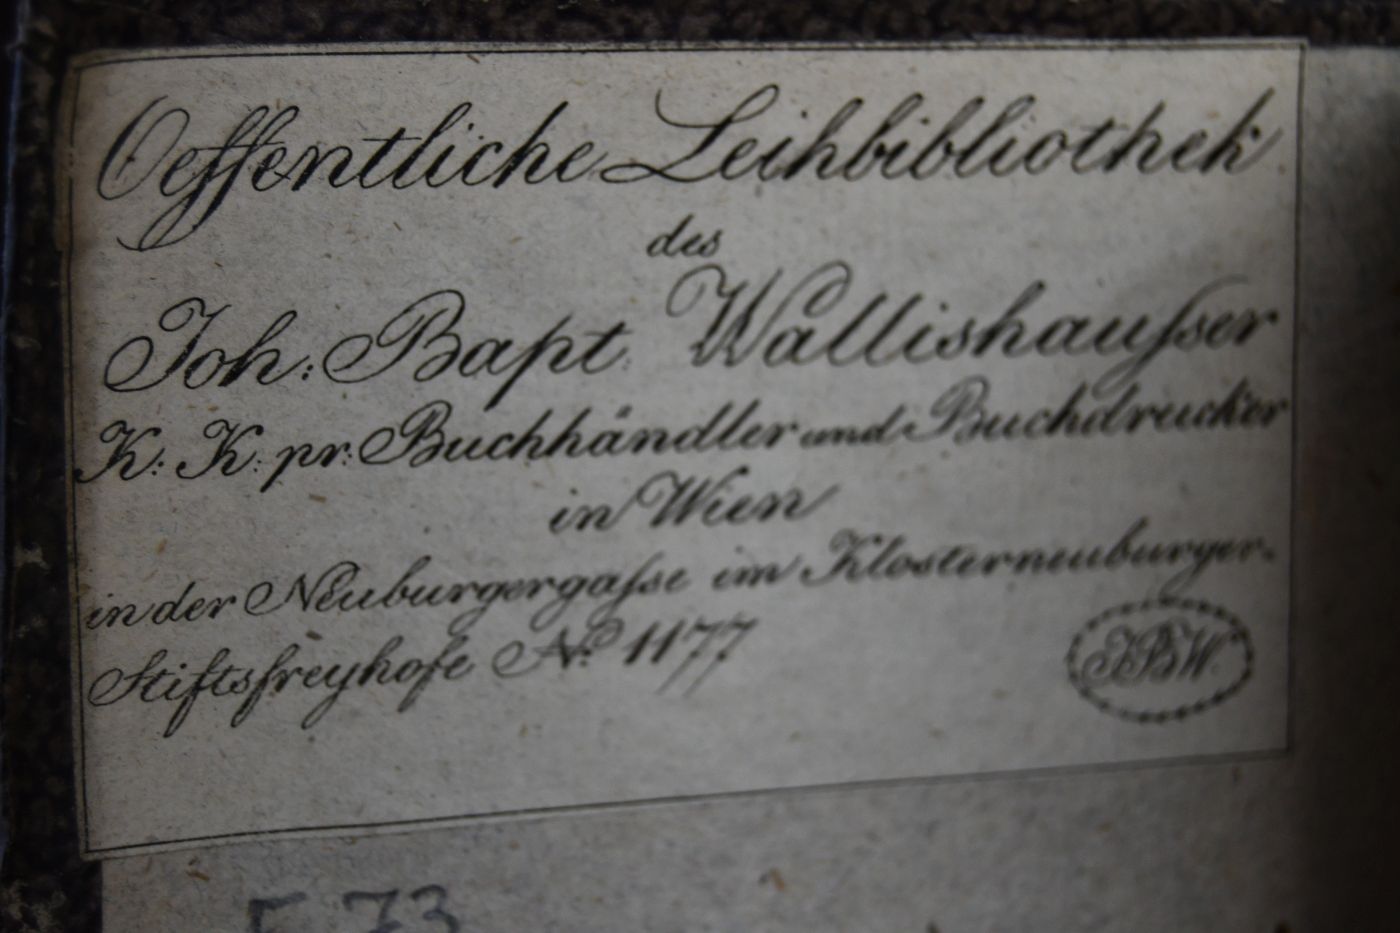 Oeffentliche Leihbibliothek
des
Joh: Bapt. Wallishauſser
K: K: pr: Buchhändler und Buchdrucker
in Wien
in der Neuburgergaſse im Klosterneuburger-
Stiftsfreyhofe No: 1177
JBW.
73